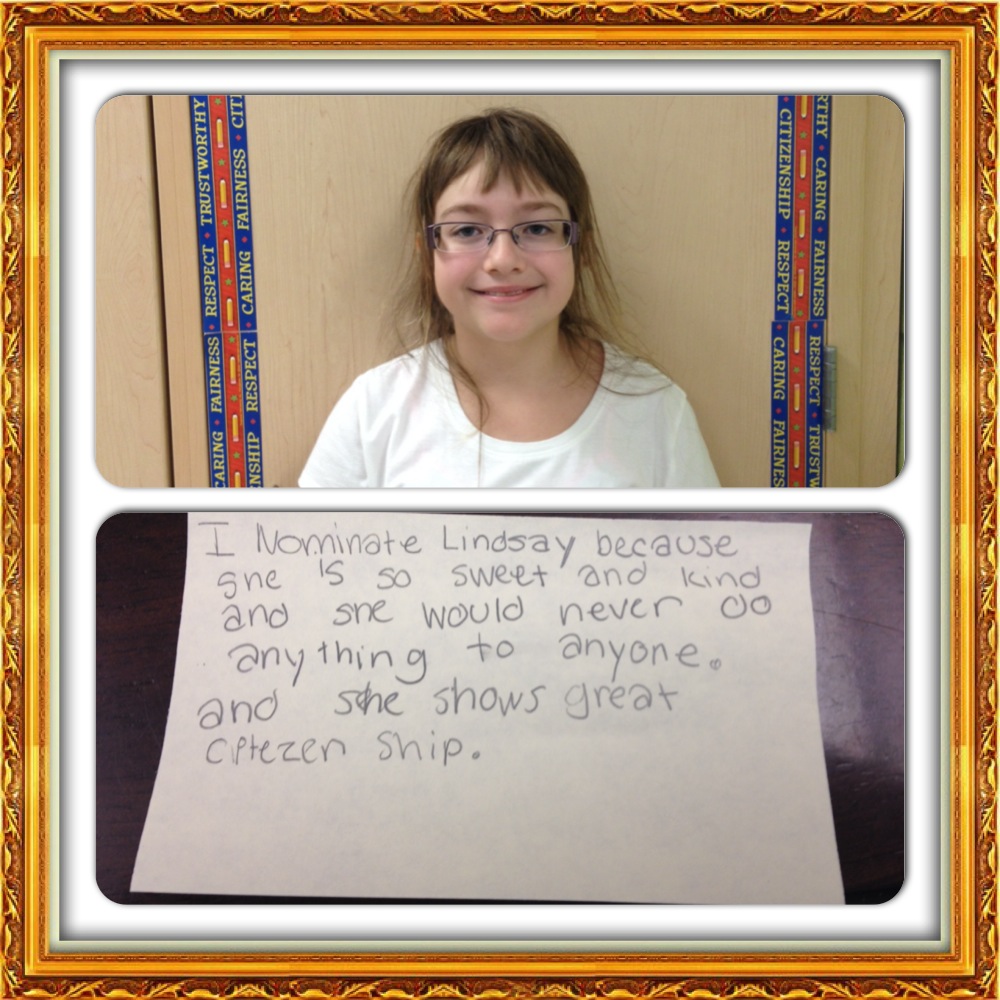 RESPECT • TRUSTWORTHY
CARING • FAIRNESS • CIT
CARING • FAIRNESS
NSHIP • RESPECT
CITIZENSHIP • RESPECT
RTHY • CARING • FAIRNESS
CARING • FAIRNES
RESPECT • TRUSTW
I Nominate Lindsay because
she is so sweet and kind
and she would never do
anything to anyone.
and she shows great
citezen ship.